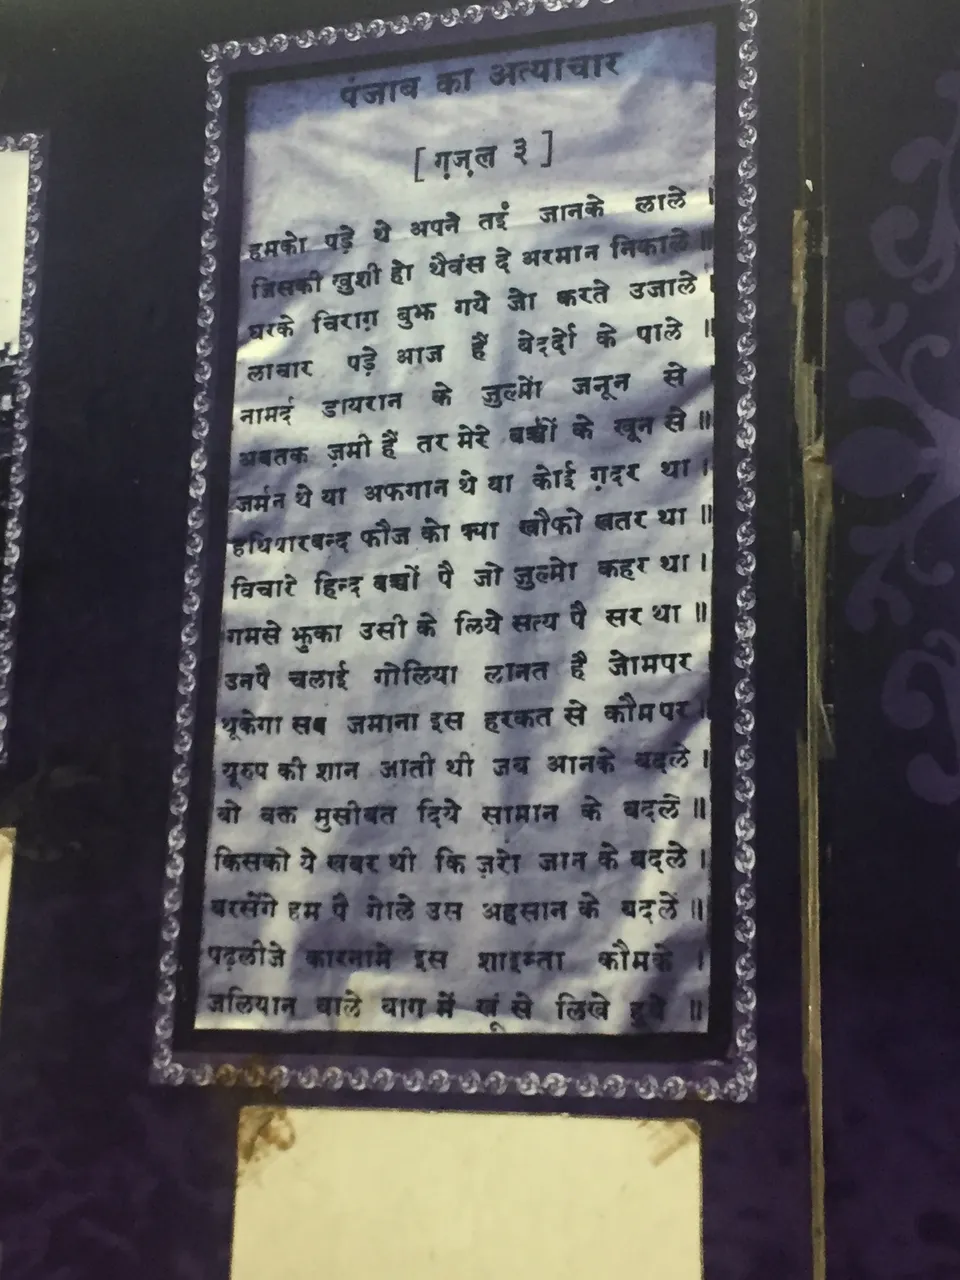 पंजाब का अत्याचार
[ ग़ज़ल ३ ]
हमको पड़े थे अपने तइं जानके लाले ।
जिसकी खुशी हो थैवंस दे अरमान निकाले ॥
घरके चिराग़ बुझ गये जो करते उजाले ।
लाचार पड़े आज हैं बेदर्दो के पाले ॥
नामर्द डायरान के ज़ुल्मों जनून से
अबतक ज़मी हैं तर मेरे बच्चों के खून से ॥
जर्मन थे या अफगान थे या कोई ग़दर था ।
हथियारबन्द फौज को क्या खौफो खतर था ॥
विचारे हिन्द बच्चों पै जो ज़ुल्मो कहर था ।
गमसे झुका उसी के लिये सत्य पै सर था ॥
उनपै चलाई गोलिया लानत है जोमपर
थूकेगा सब जमाना इस हरकत से कौमपर ॥
यूरुप की शान जाती थी जब आनके बदले ।
वो वक्त मुसीबत दिये सामान के बदले ॥
किसको ये खबर थी कि ज़रो जान के बदले ।
बरसेंगे हम पै गोले उस अहसान के बदलें ॥
पढ़लीजे कारनामे इस शाइस्ता कौमके ।
जलियान वाले बाग में खूं से लिखे हुवे ॥